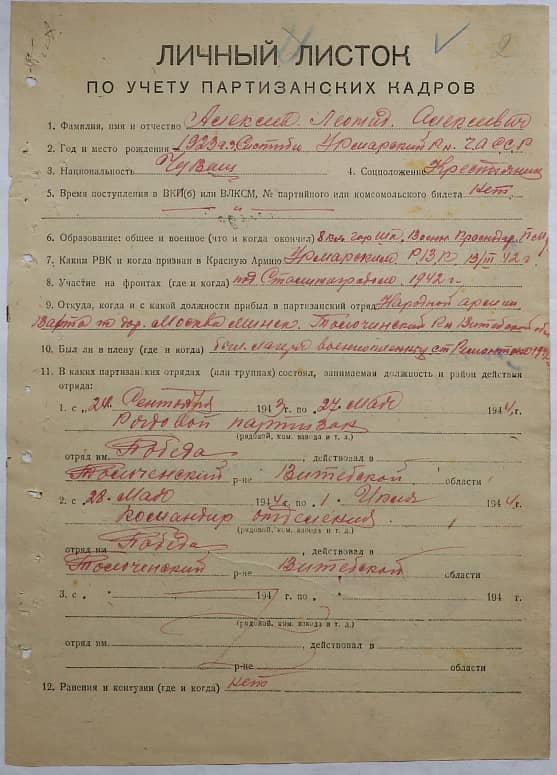 2
ЛИЧНЫЙ ЛИСТОК
ПО УЧЕТУ ПАРТИЗАНСКИХ КАДРОВ
1. Фамилия, имя и отчество Алексеев Леонид Алексеевич
2. Год и место рождения 1923 г. Урмарский р-н ЧАССР
3. Национальность Чуваш 4. Соцположение Крестьянин
5. Время поступления в ВКП(б) или ВЛКСМ, № партийного или комсомольского билета нет
6. Образование: общее и военное (что и когда окончил) 8 кл. Военн. Краснодар.
7. Каким РВК и когда призван в Красную Армию Урмарским РВК 13/III 42 г.
8. Участие на фронтах (где и когда) под Сталинградом 1942 г.
9. Откуда, и с какой должности прибыл в партизанский отряд Народной
по дор. Москва Минск. Толочинский р-н Витебской обл.
10. Был ли в плену (где и когда) лагерь военнопленных ст.
11. В каких партизанских отрядах (или группах) состоял, занимаемая должность и район действия
отряда:
1. с 24 Сентября 1943 г. по 27 мая 1944 г.
Рядовой партизан
(рядовой, ком. взвода и т. д.)
отряд им. Победа, действовал в
Толоченский р-не Витебской области
2. с 28 мая 1944 г. по 1 Июля 1944 г.
Командир отделения
(рядовой, ком. взвода и т. д.)
отряд им Победа, действовал в
Толоченский р-не Витебской области
3. с " 194 г. по " 194 г.
(рядовой, ком. взвода и т. д.)
отряд им. , действовал в
р-не области
12. Ранения и контузии (где и когда) нет